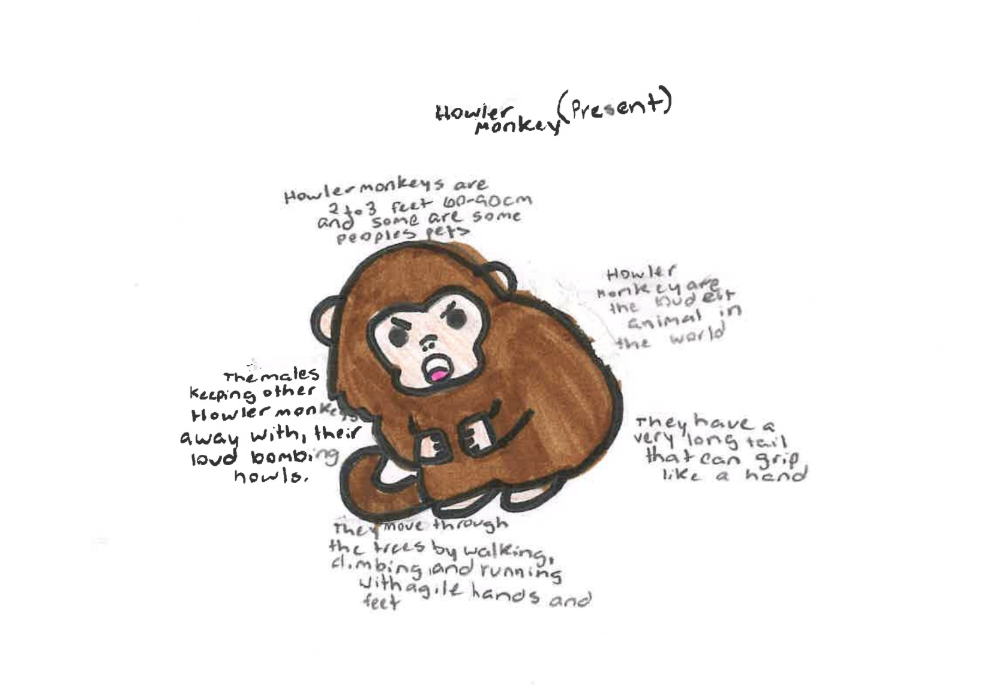 Howler
Monkey (Present)
Howler monkeys are
2 to 3 feet 60-90cm
and some are some
peoples pets
Howler
monkey are
the loudest
animal in
the world
The males
keeping other
Howler monkeys
away with, their
loud bombing
howls.
They have a
very long tail
that can grip
like a hand
They move through
the trees by walking,
climbing, and running
with agile hands and
feet